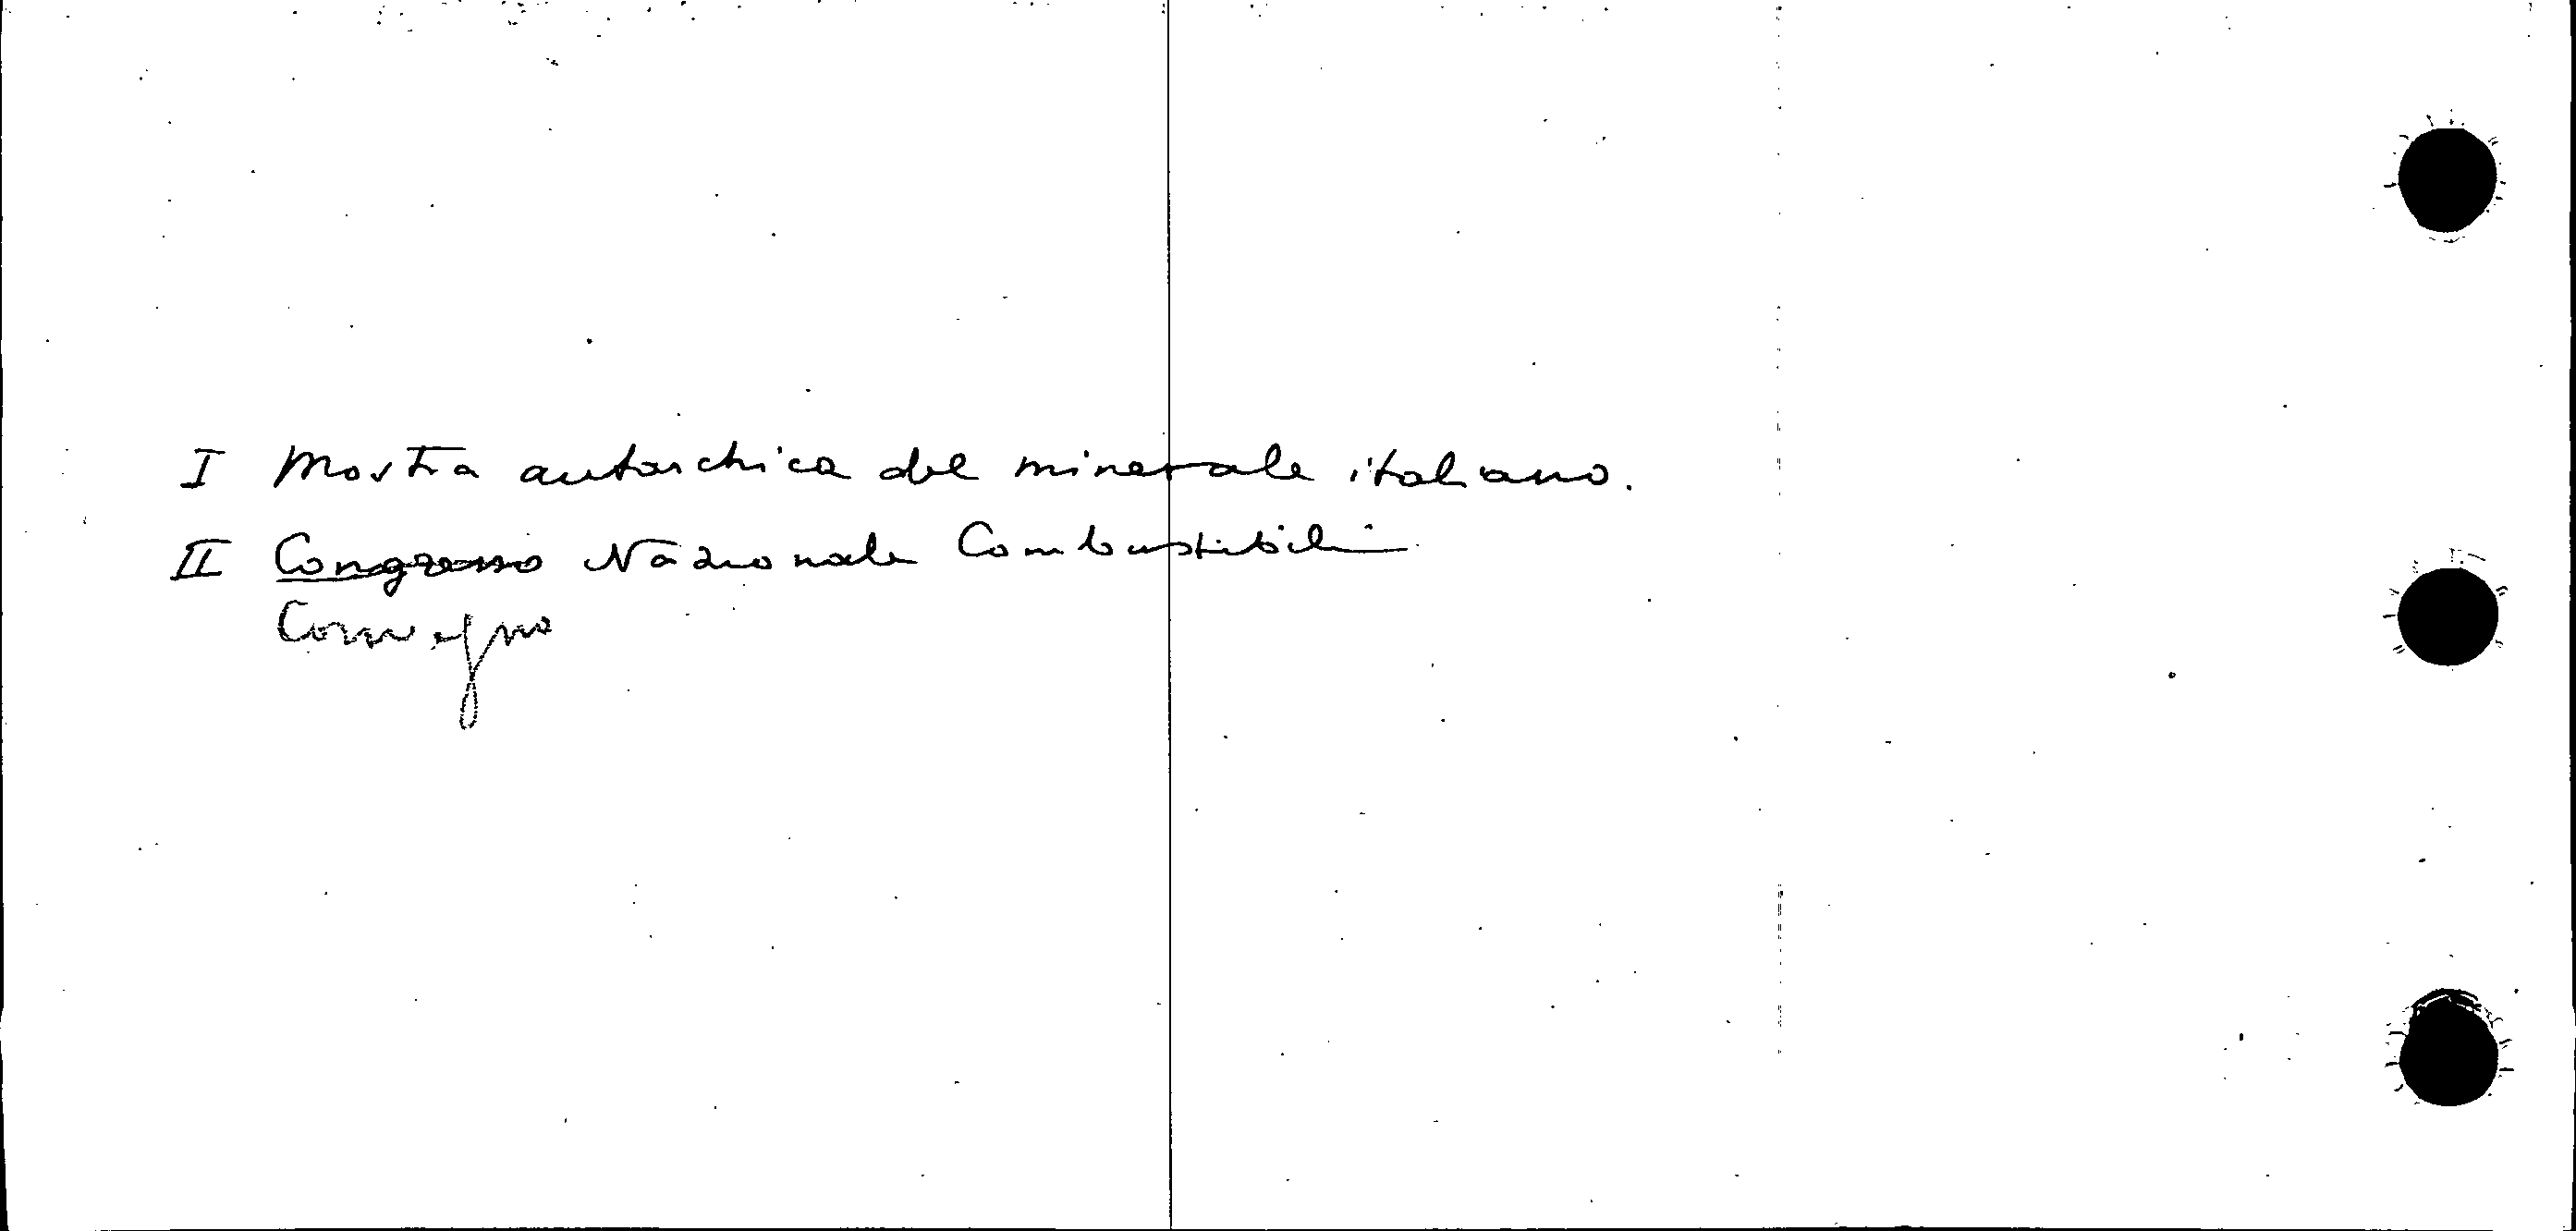 I Mostra autarchica del minerale italiano.
II Congresso Nazionale Combustibili
Convegno